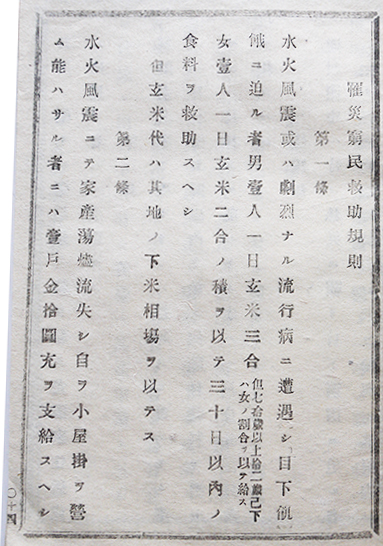 罹災窮民救助規則
第一條
水火風震或ハ劇烈ナル流行病ニ遭遇シ目下飢
餓ニ迫ル者男壹人一日玄米三合但七拾歲以上拾二歲已下ハ女ノ割合ヲ以テ給ス
女壹人一日玄米二合ノ積ヲ以テ三十日以內ノ
食料ヲ救助スヘシ
但玄米代ハ其地ノ下米相場ヲ以テス
第二條
水火風震ニテ家產蕩燼流失シ自ヲ小屋掛ヲ營
ム能ハサル者ニハ壹戶金拾圓充ヲ支給スヘシ
〇十四